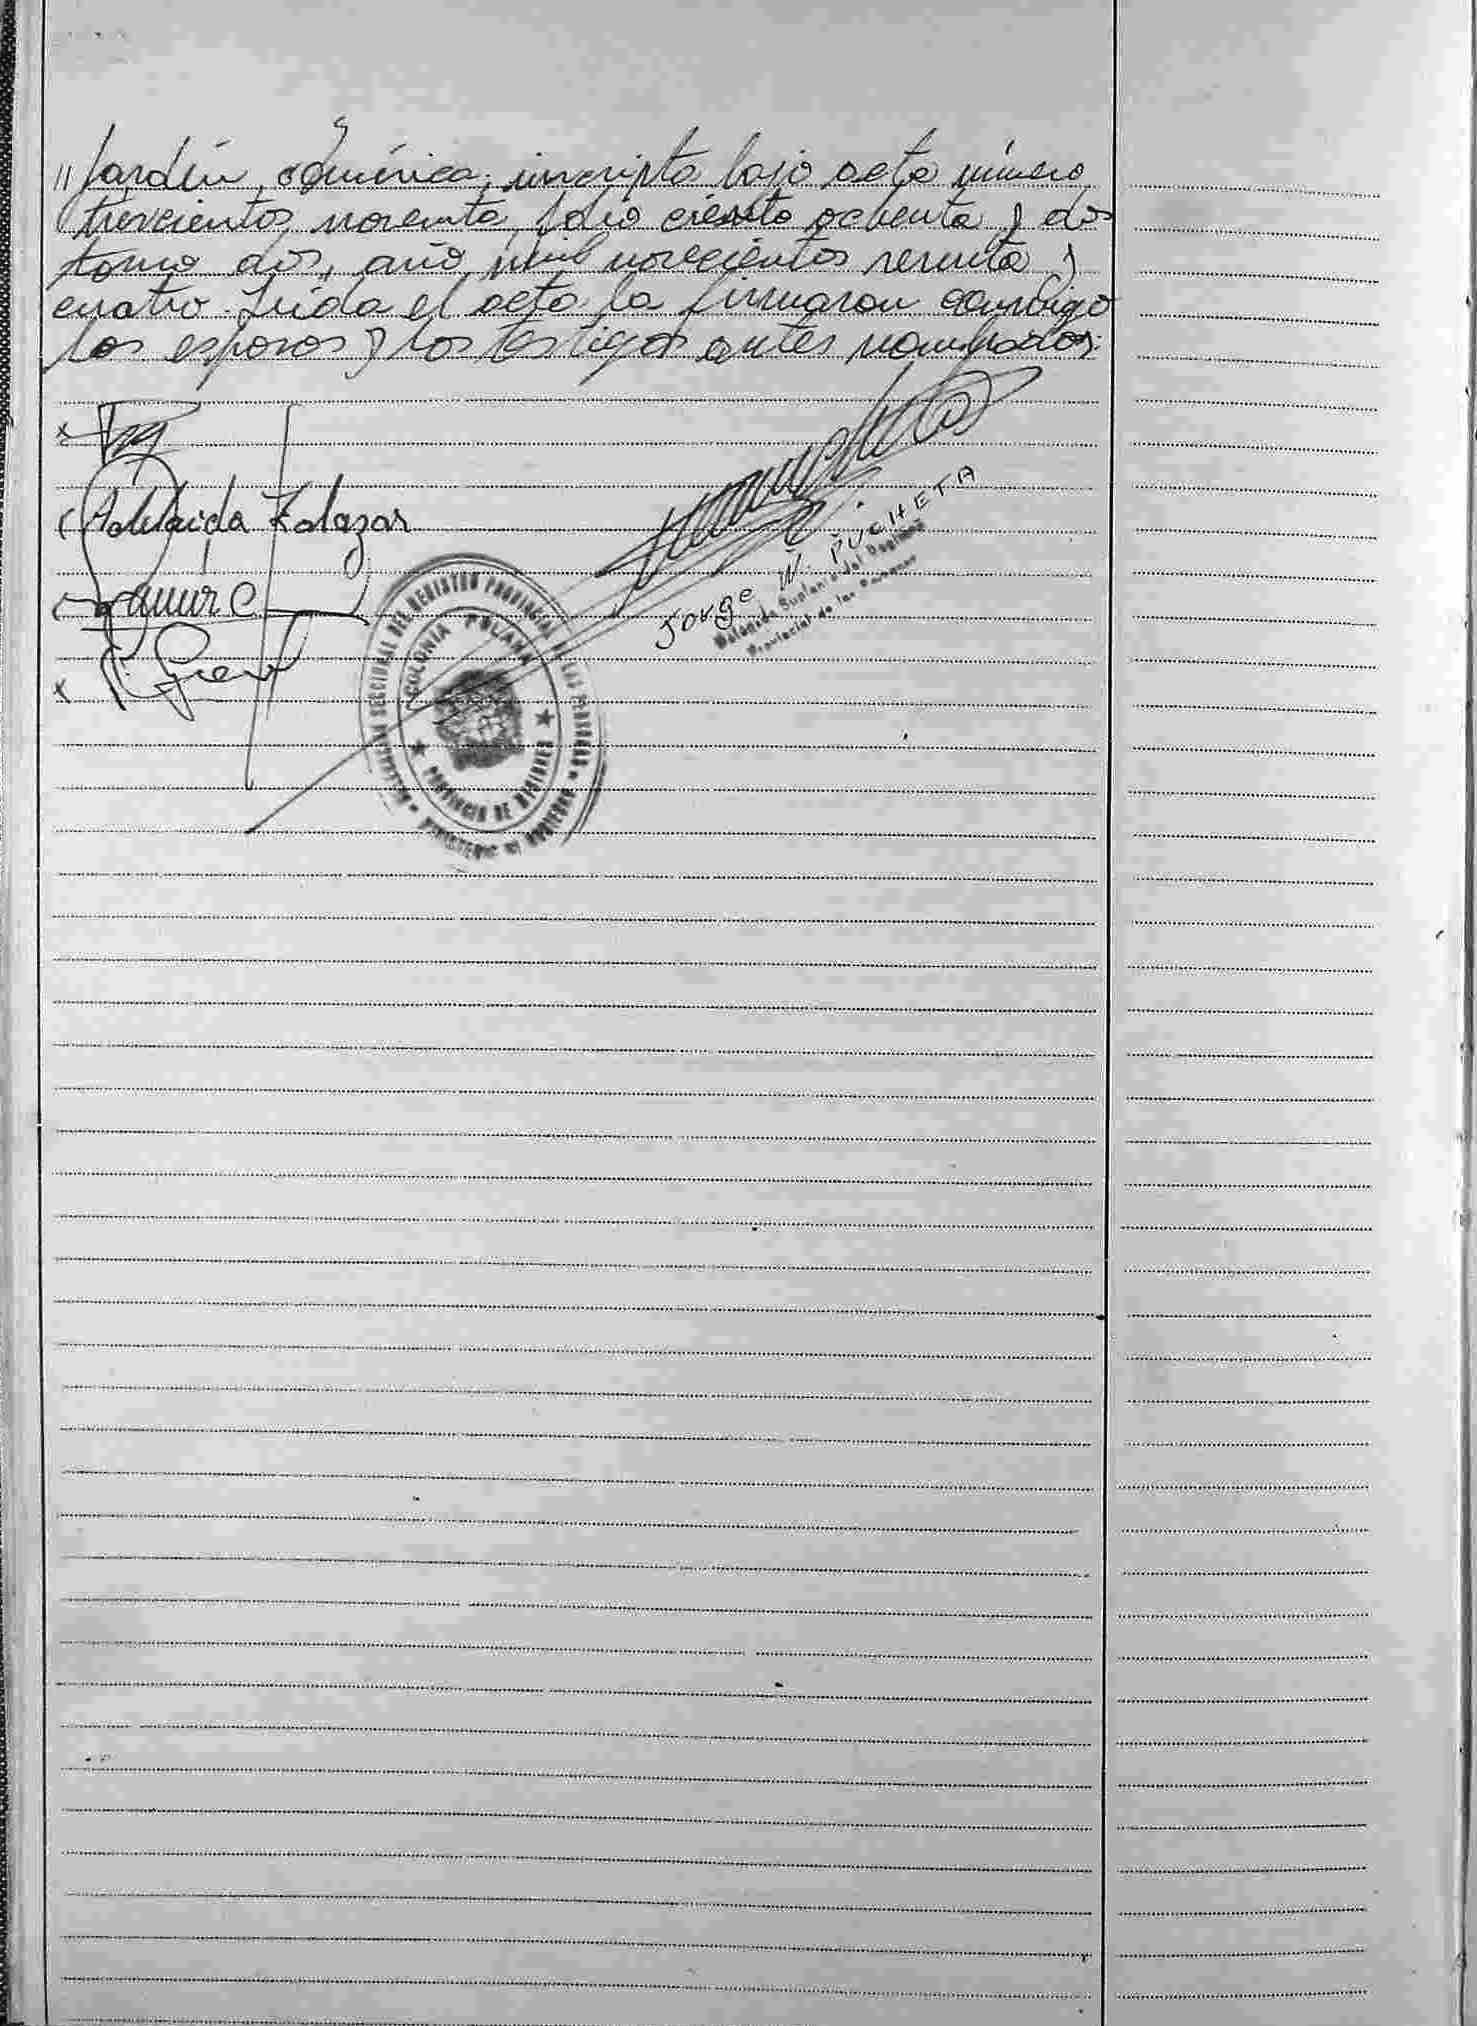 "Jardín América, inscripta bajo acta número
trescientos noventa, folio ciento ochenta y dos
tomo dos, año mil novecientos sesenta y
cuatro. Leída el acta la firmaron conmigo
los esposos y los testigos antes nombrados.
Adelaida Zalazar
JORGE W. PUCHETA
Delegado Suplente del Registro
Provincial de las Personas
DELEGACION SECCIONAL DEL REGISTRO PROVINCIAL DE LAS PERSONAS - MINISTERIO DE GOBIERNO
COLONIA POLANA
PROVINCIA DE MISIONES